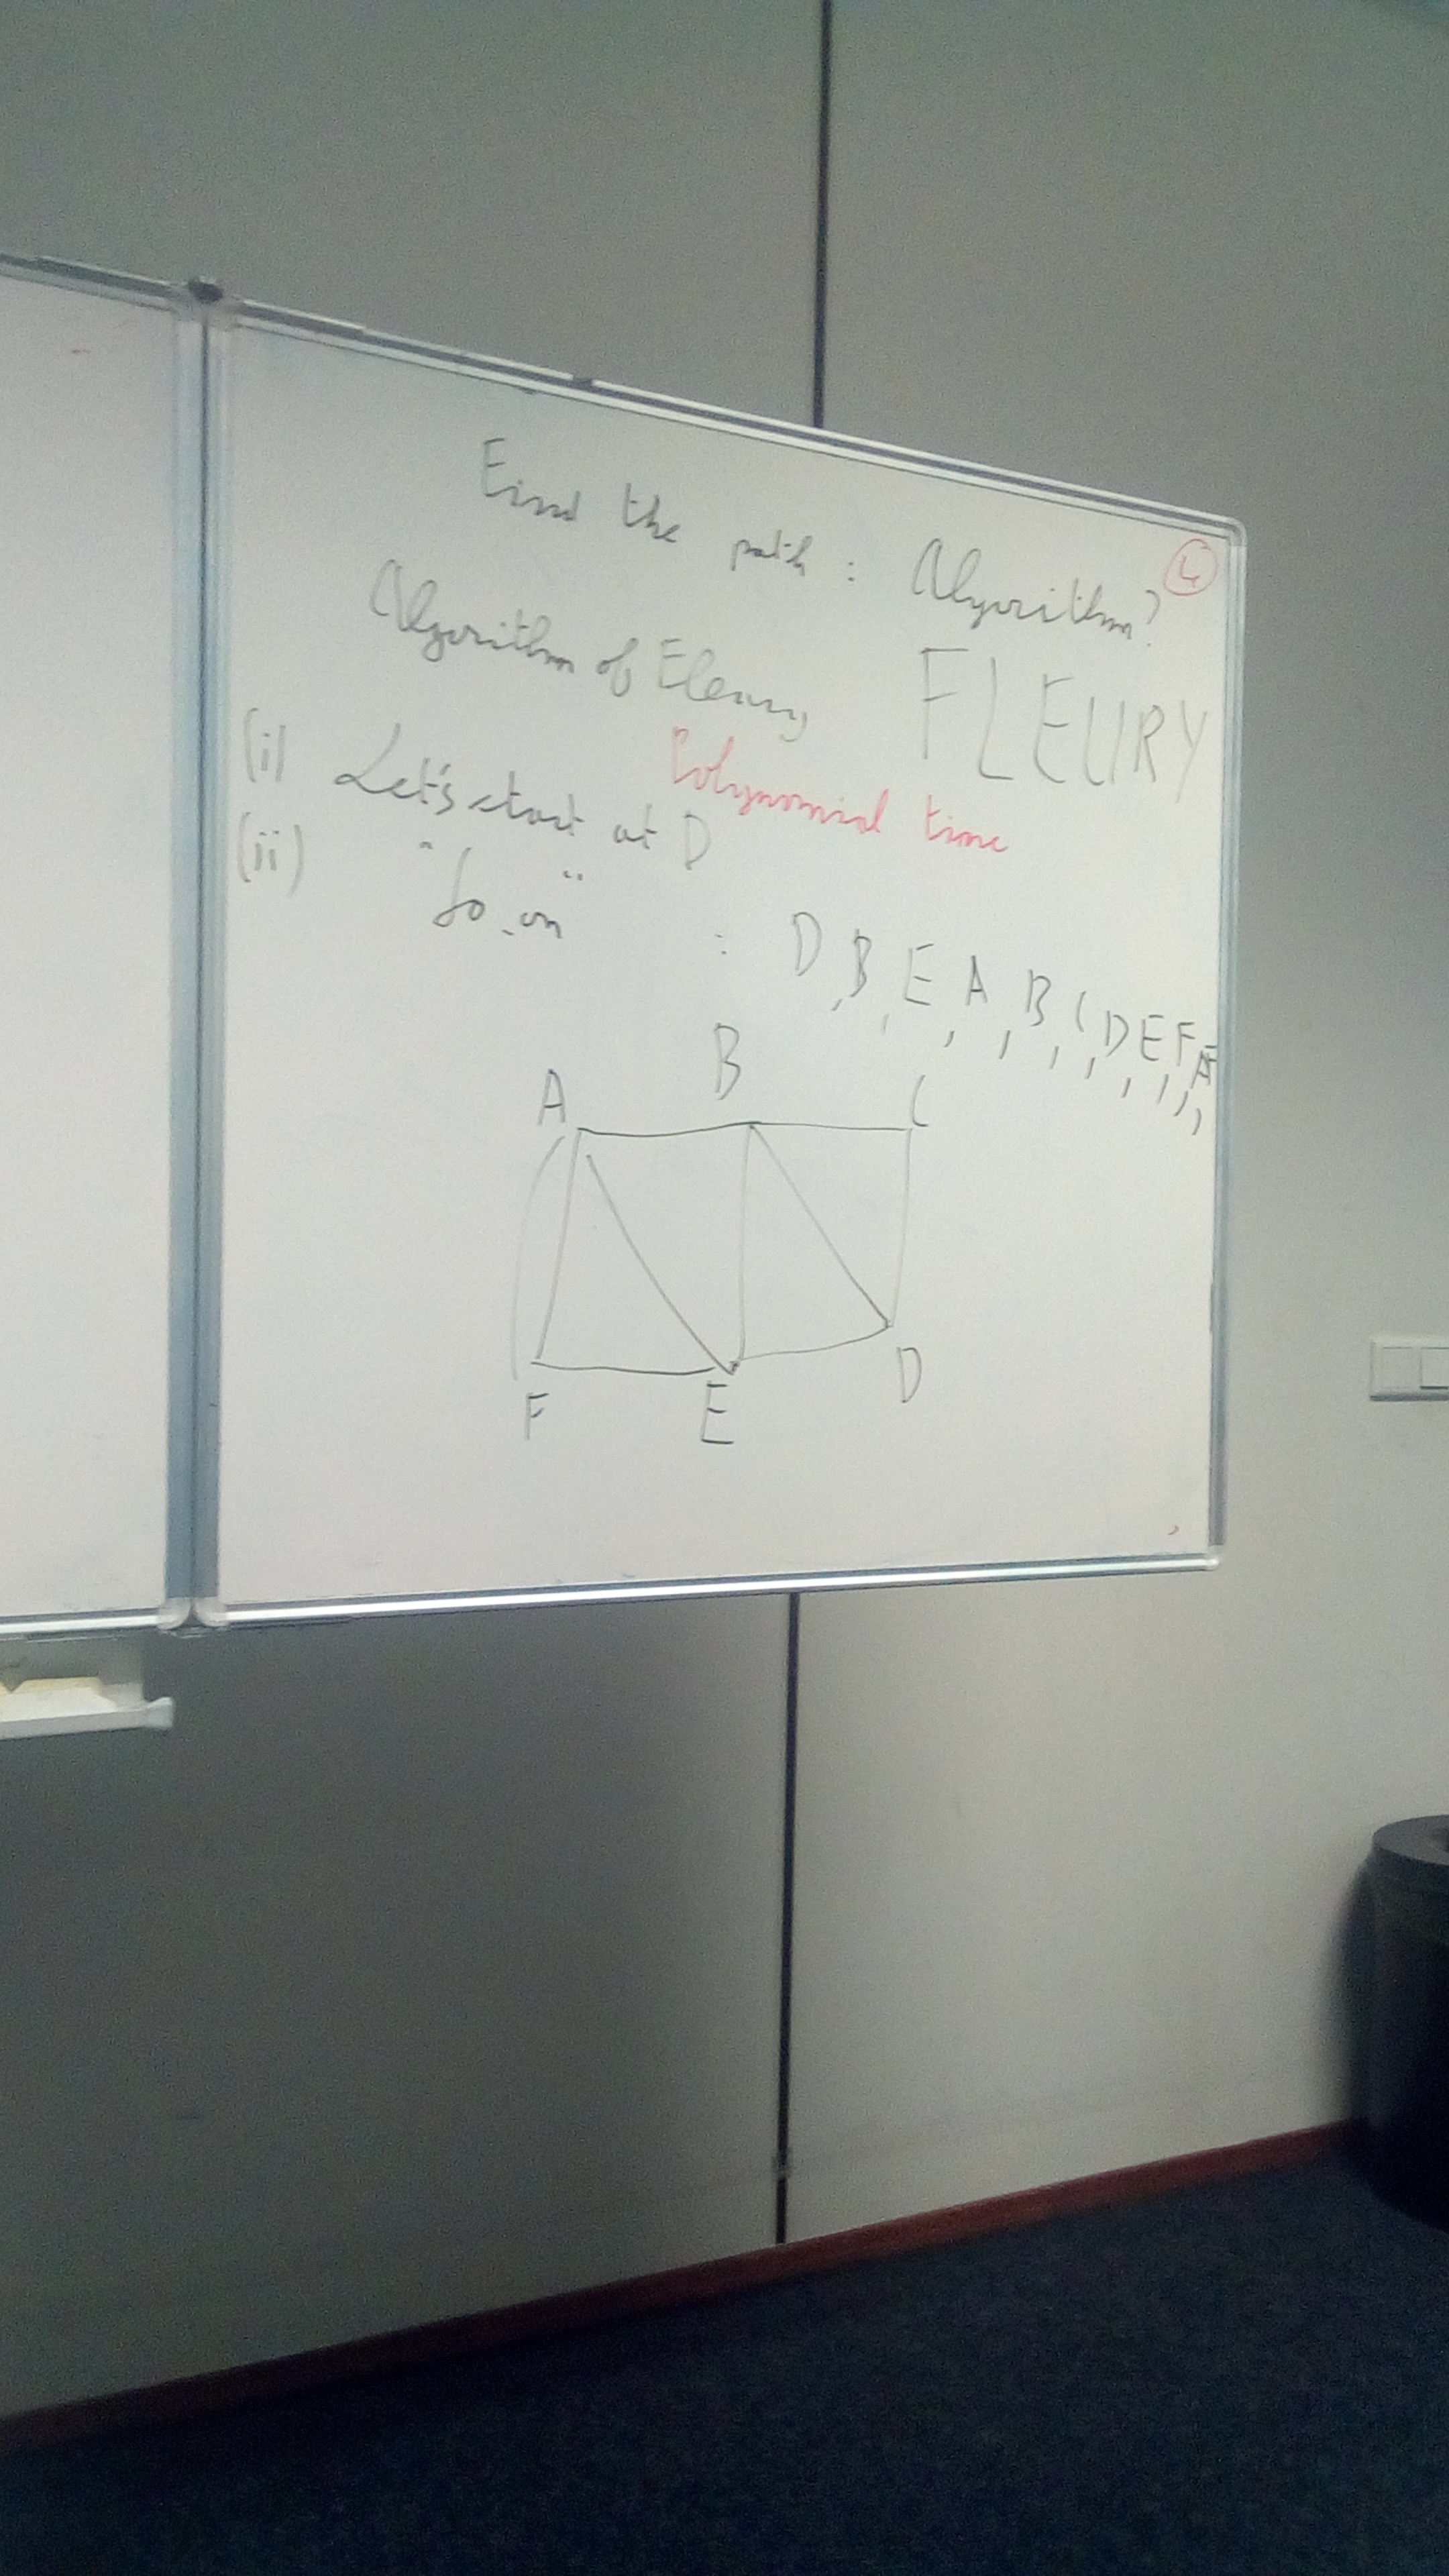 Find the path : Algorithm?
4
Algorithm of Fleury
FLEURY
Polynomial time
(i) Let's start at D
(ii) "Go on" : D, B, E, A, B, C, D, E, F, A, F
A B C
F E D